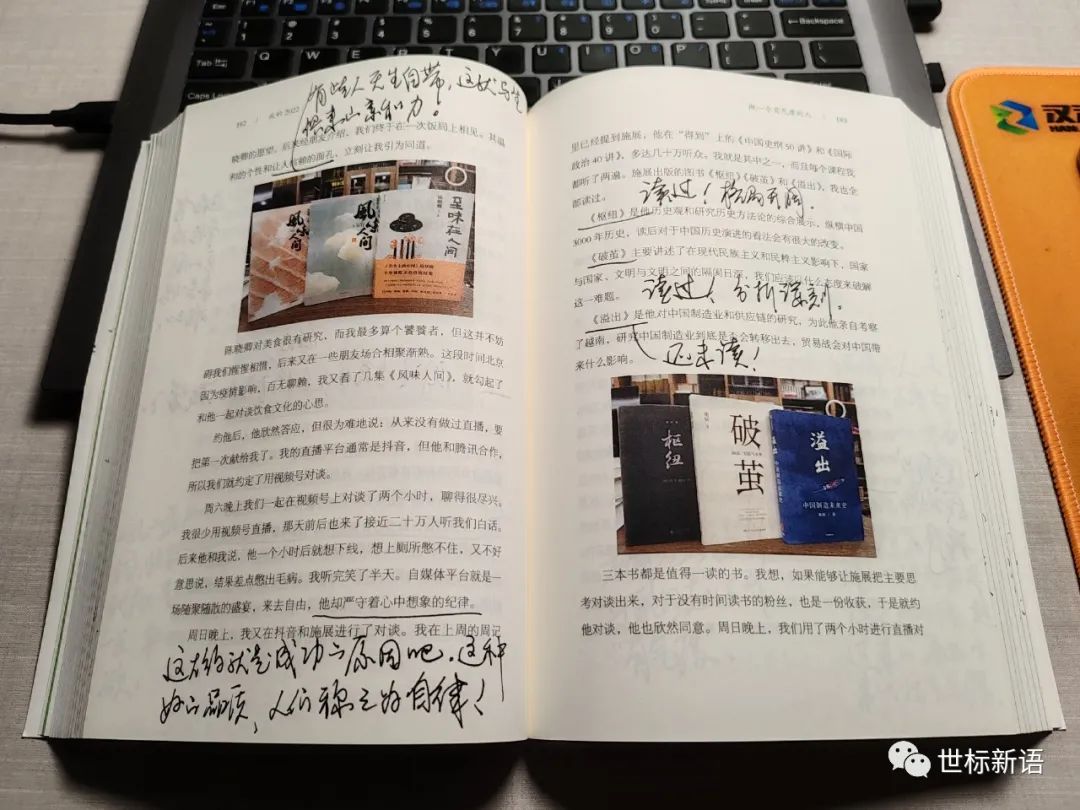 Backspace
Tab
Caps Lock
有些人天生自带，这状与生
俱来的亲和力。
182 | 我的2022
晓卿的愿望。后来经朋友介绍，我们终于在一次饭局上相见。其温
和的个性和让人信赖的面孔，立刻让我引为同道。
風味人间
風味人间
至味在人间
陈晓卿对美食很有研究，而我最多算个饕餮者，但这并不妨
碍我们惺惺相惜，后来又在一些朋友场合相聚渐熟。这段时间北京
因为疫情影响，百无聊赖，我又看了几集《风味人间》，就勾起了
和他一起对谈饮食文化的心思。
约他后，他欣然答应，但很为难地说：从来没有做过直播，要
把第一次献给我了。我的直播平台通常是抖音，但他和腾讯合作，
所以我们就约定了用视频号对谈。
周六晚上我们一起在视频号上对谈了两个小时，聊得很尽兴。
我很少用视频号直播，那天前后也来了接近二十万人听我们白话。
后来他和我说，他一个小时后就想下线，想上厕所憋不住，又不好
意思说，结果差点憋出毛病。我听完笑了半天。自媒体平台就是一
场随聚随散的盛宴，来去自由，他却严守着心中想象的纪律。
周日晚上，我又在抖音和施展进行了对谈。我在上周的周记
这大约就是成功的原因吧，这种
好的品质，人们称之为自律！
做一个有态度的人 | 183
里已经提到施展，他在“得到”上的《中国史纲50讲》和《国际
政治40讲》，多达几十万听众。我就是其中之一，而且每个课程我
都听了两遍。施展出版的图书《枢纽》《破茧》和《溢出》，我也全
部读过。
读过！格局开阔。
《枢纽》是他历史观和研究历史方法论的综合展示，纵横中国
3000年历史，读后对于中国历史演进的看法会有很大的改变。
《破茧》主要讲述了在现代民族主义和民粹主义影响下，国家
与国家、文明与文明之间的隔阂日深，我们应该以什么态度来破解
这一难题。
读过！分析深刻。
《溢出》是他对中国制造业和供应链的研究，为此他亲自考察
了越南，研究中国制造业到底是否会转移出去，贸易战会对中国带
来什么影响。
还未读！
枢纽
破茧
溢出
中国制造未来史
三本书都是值得一读的书。我想，如果能够让施展把主要思
考对谈出来，对于没有时间读书的粉丝，也是一份收获，于是就约
他对谈，他也欣然同意。周日晚上，我们用了两个小时进行直播对
世标新语